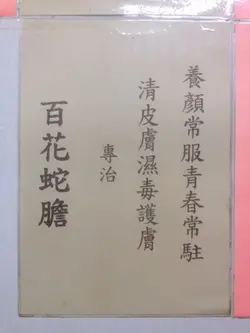 養顏常服青春常駐
清皮膚濕毒護膚
專治
百花蛇膽